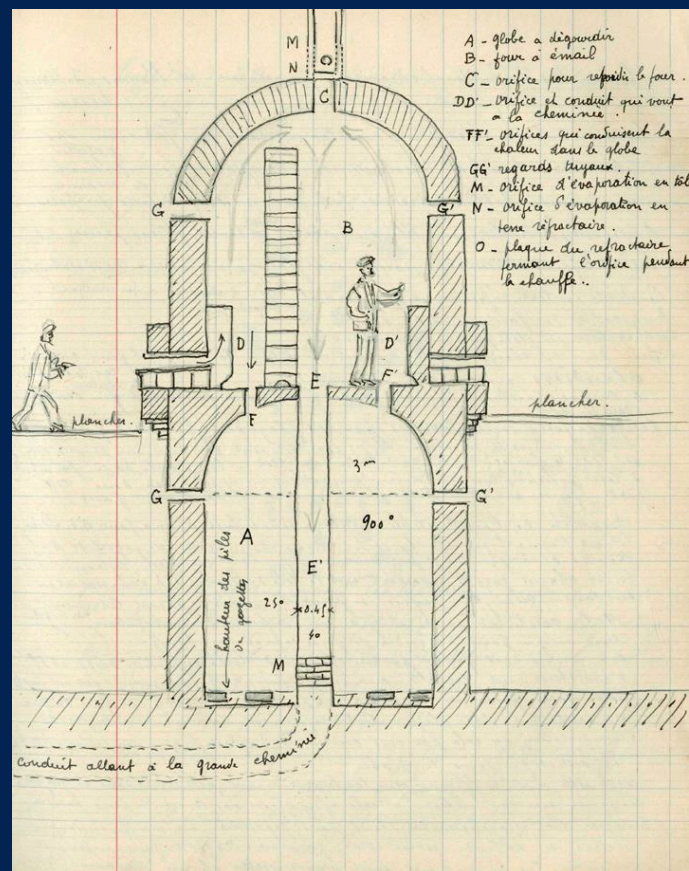 M
N
O
C
A - globe à dégourdir
B - four à émail
C - orifice pour refroidir le four.
DD' - orifice et conduit qui vont
à la cheminée.
FF' - orifices qui conduisent la
chaleur dans le globe
GG' regards tuyaux.
M - orifice d'évaporation en tôl
N - orifice d'évaporation en
terre réfractaire.
O - plaque du refractaire
fermant l'orifice pendant
la chauffe..
G
G'
B
D
D'
E
F'
F
plancher.
plancher.
3m
G
G'
900°
A
E'
hauteur des piles
de gazettes
250
0.45
40
M
conduit allant à la grande cheminée